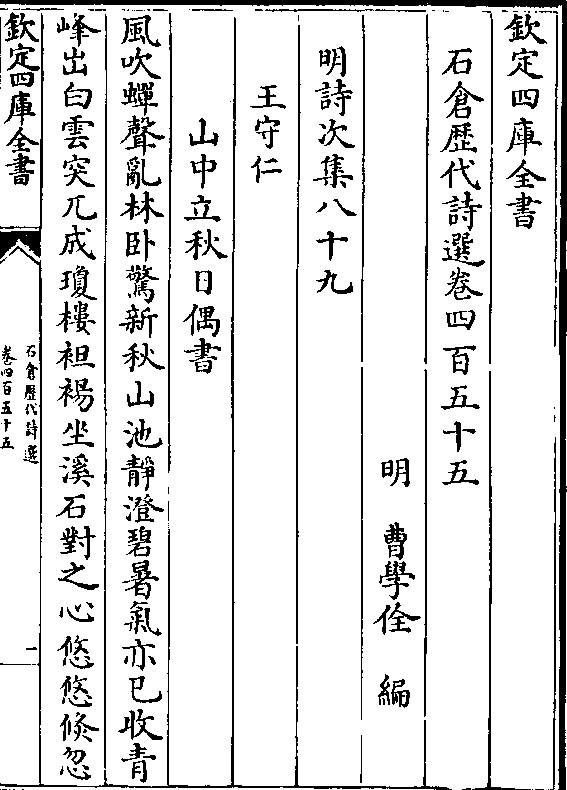 欽定四庫全書
石倉歴代詩選卷四百五十五
明　曹學佺　編
明詩次集八十九
王守仁
山中立秋日偶書
風吹蟬聲亂林卧驚新秋山池靜澄碧暑氣亦已收青
峰出白雲突兀成瓊樓袒裼坐溪石對之心悠悠倐忽
欽定四庫全書
石倉歴代詩選
卷四百五十五
一